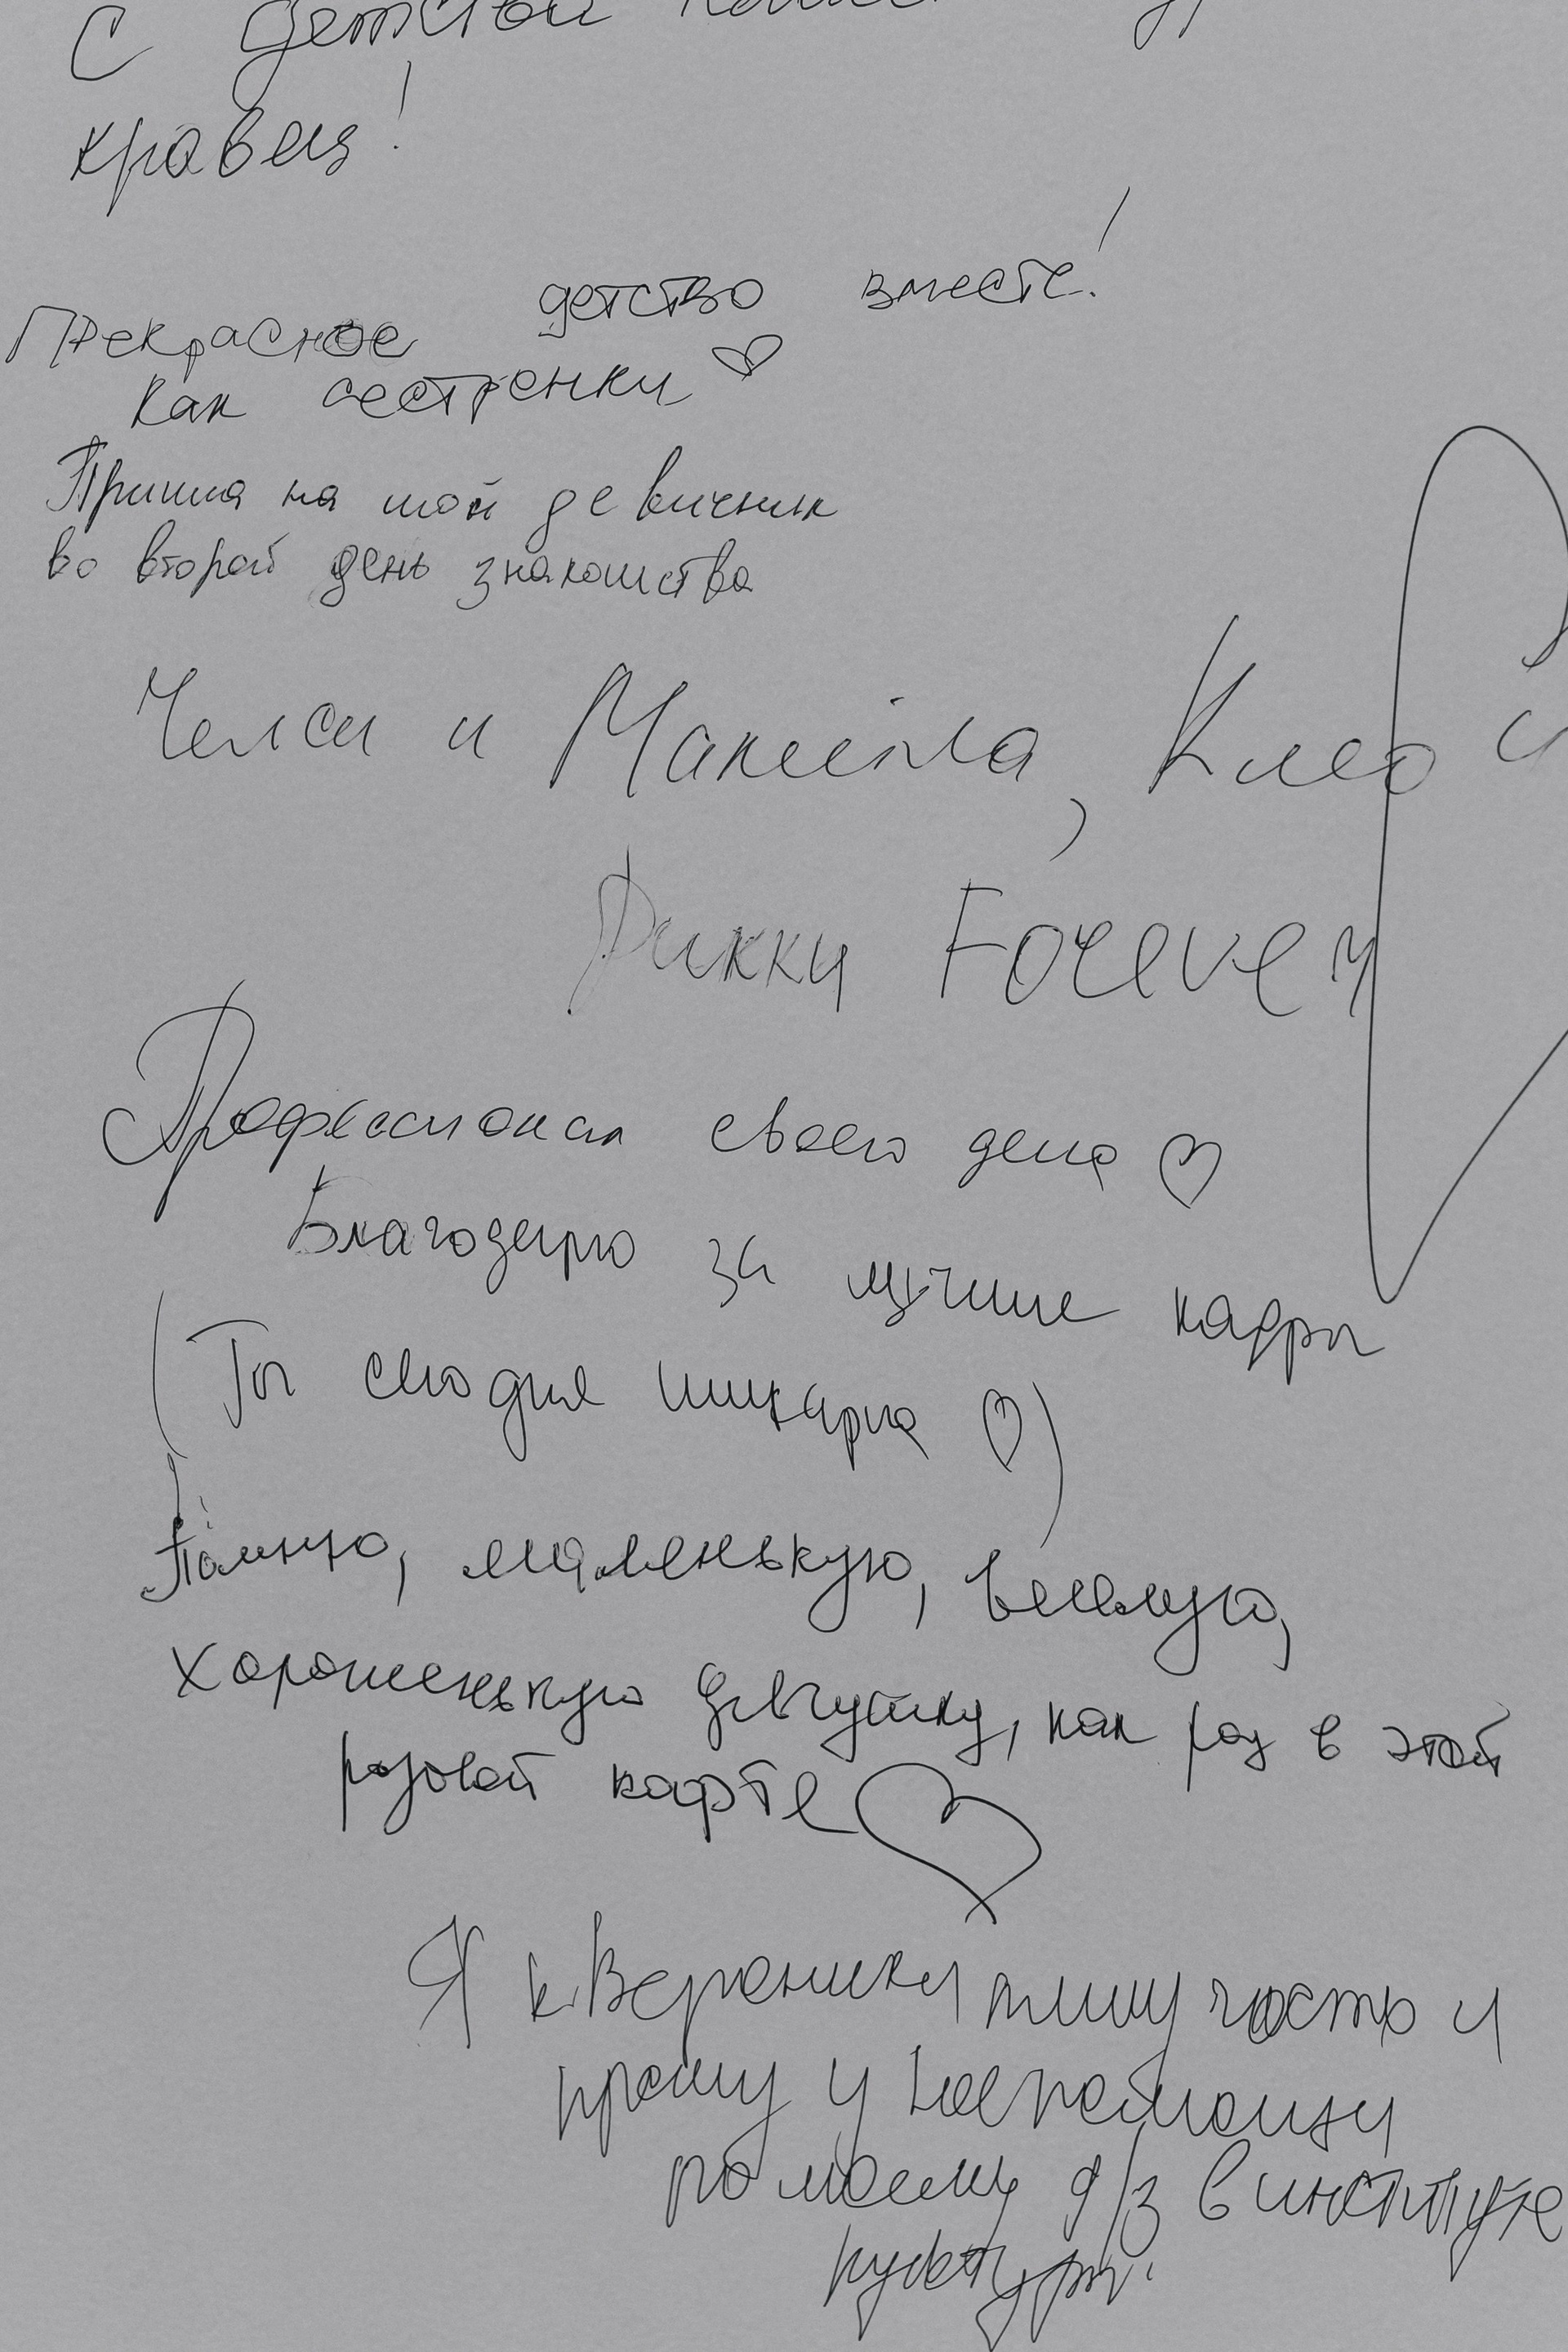 С детства
кравец!
Прекрасное детство вместе!
как сестренки
Пришла на мой девичник
во второй день знакомства
Челси и Макейла, Клео и
Рикки Forever
Профессионал своего дела
Благодарю за лучшие кадры
(Ты сегодня шикарна)
Помню, маленькую, весёлую,
хорошенькую девчушку, как раз в этой
розовой кофте
Я к Вероники пишу часто и
прошу у нее помощи
по моему д/з в институте
культуры.